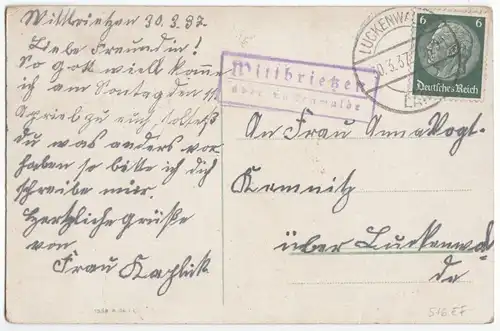 Wittbrietzen 30.3.37
Liebe Freundin!
So Gott will kome
ich am Sontag den 11
Apriel zu euch, soltest
du was anders vor
haben so bitte ich dich
schreibe mir.
Hertzliche Grüße
von
Frau Kaplick
Wittbrietzen
über Luckenwalde
LUCKENWA
30.3.37
6 6
Deutsches Reich
An Frau Anna Vogt.
Kemnitz
über Luckenwal
de
516 EF